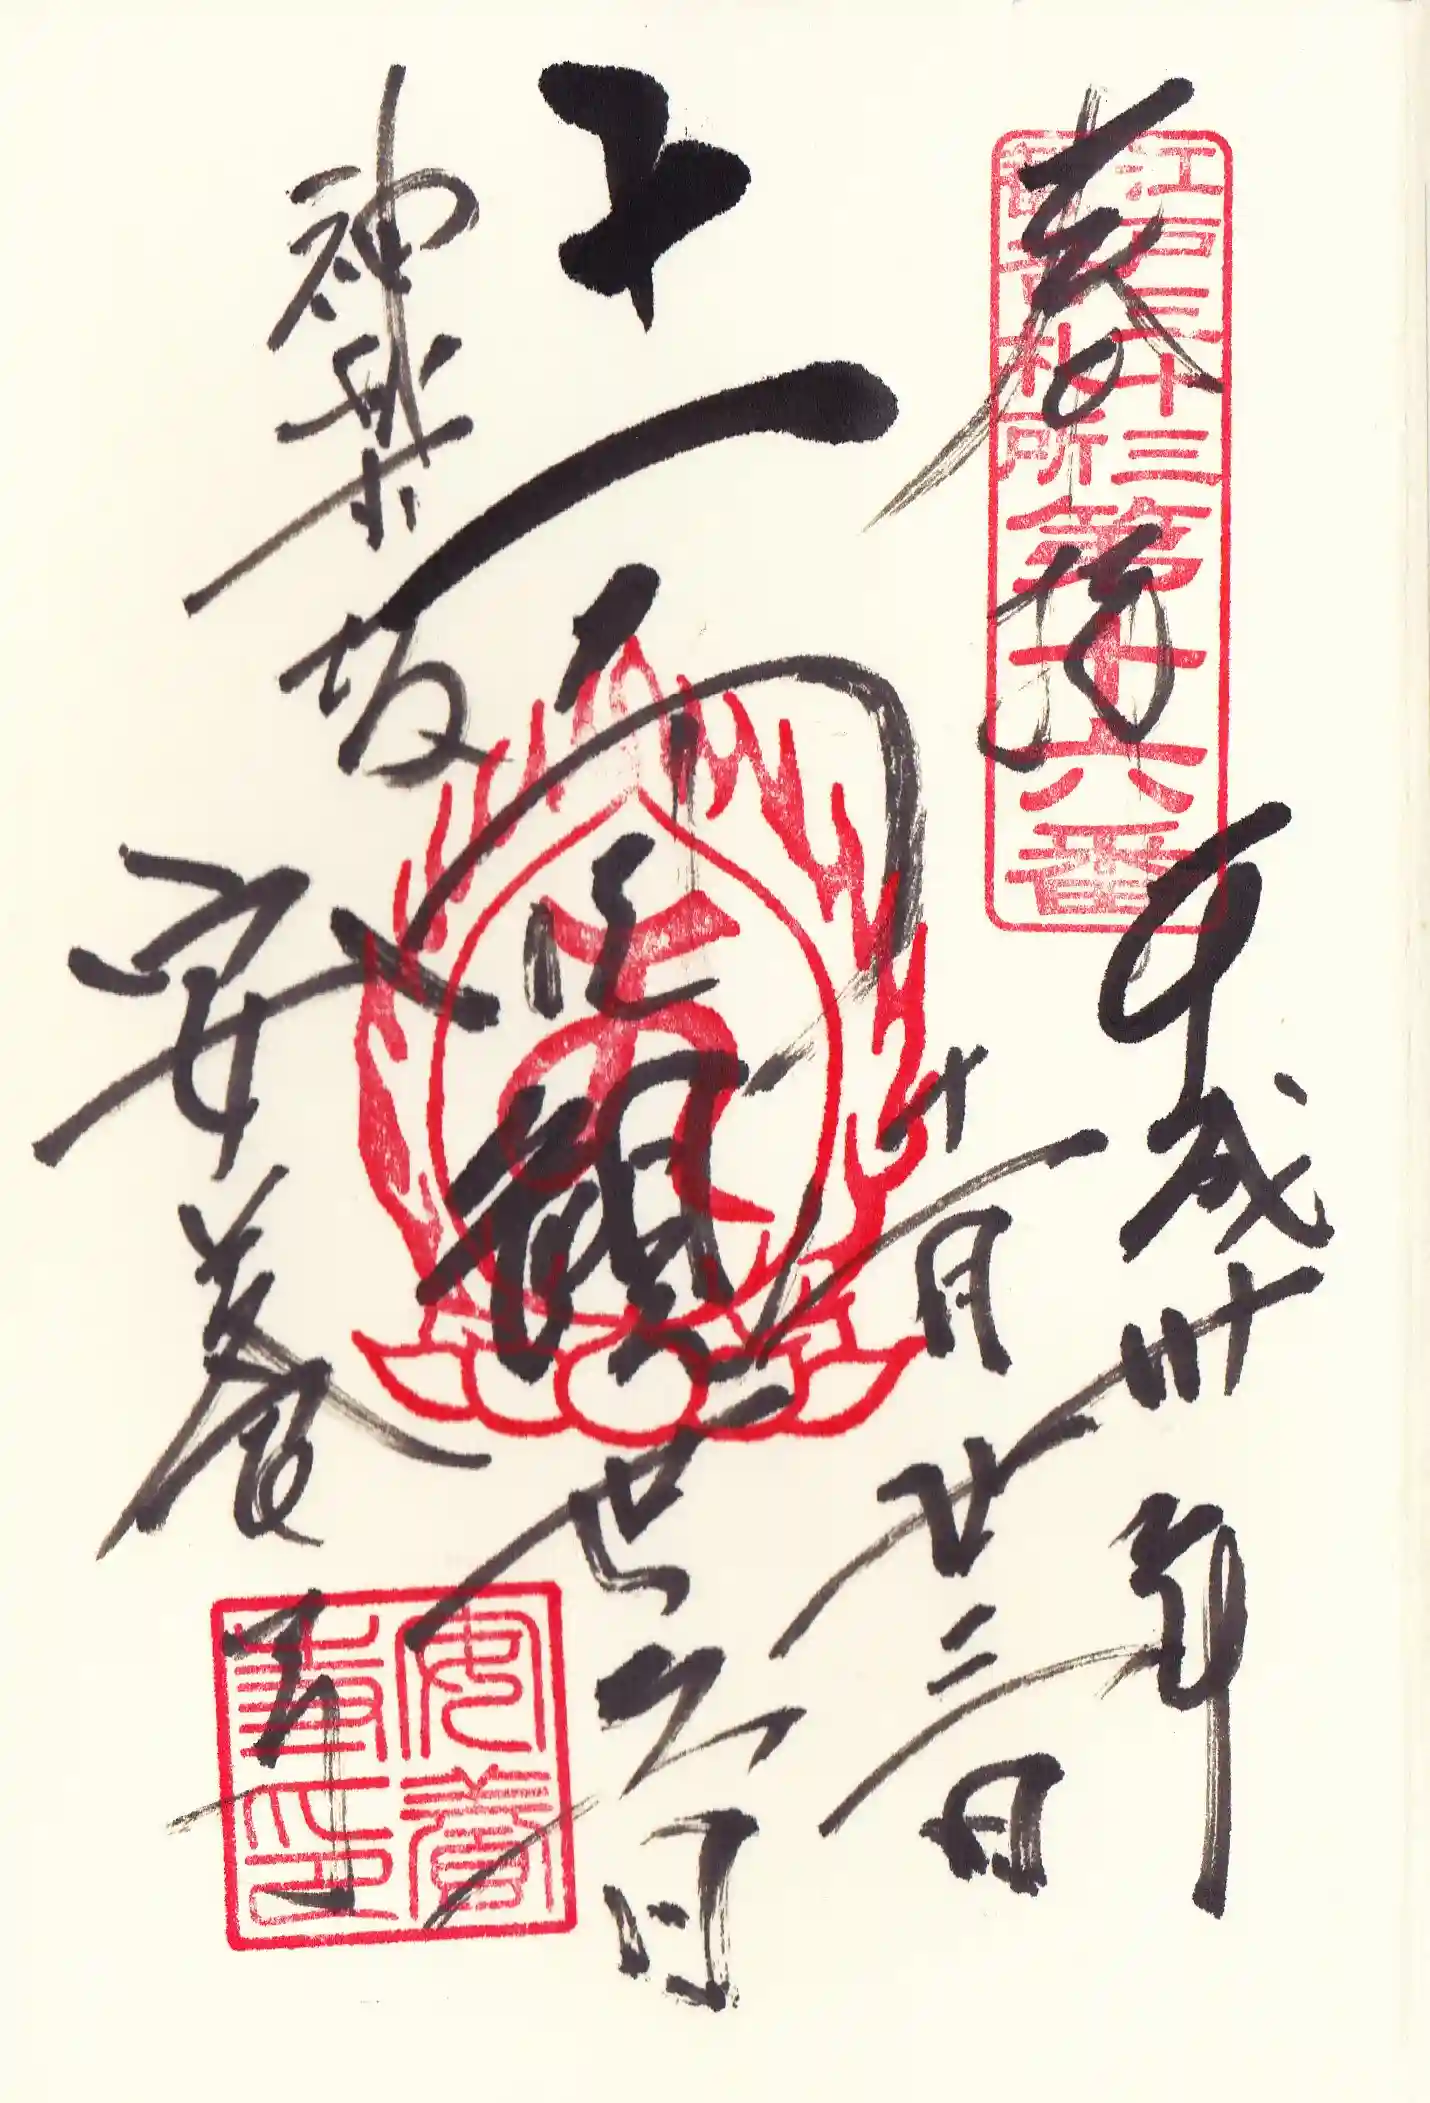 江戸三十三
観音札所
第十六番
奉拝
平成卅年
十一月廿三日
十一面観世音
神楽坂
安養寺
安養
寺印